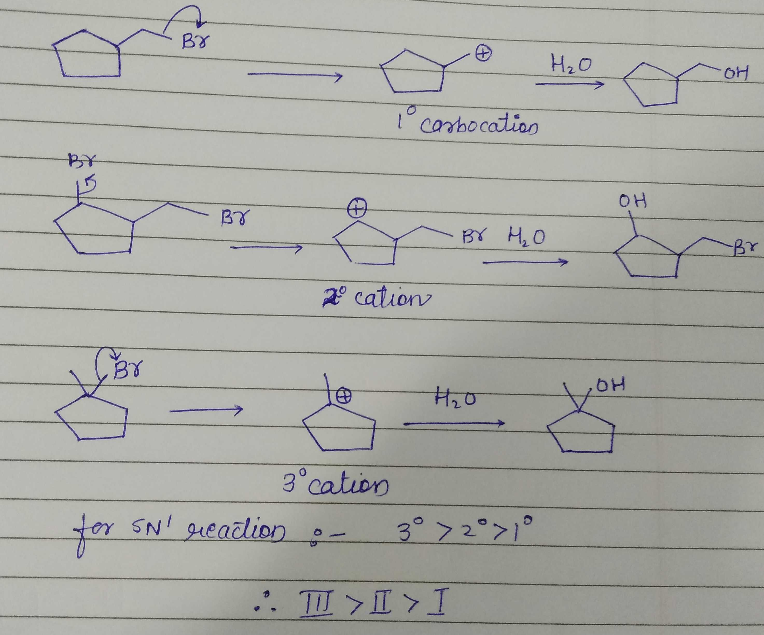 Br
⊕ H₂O OH
1° carbocation
Br
Br ⊕ Br H₂O OH Br
2° cation
Br ⊕ H₂O OH
3° cation
for SN¹ reaction :- 3° > 2° > 1°
∴ III > II > I